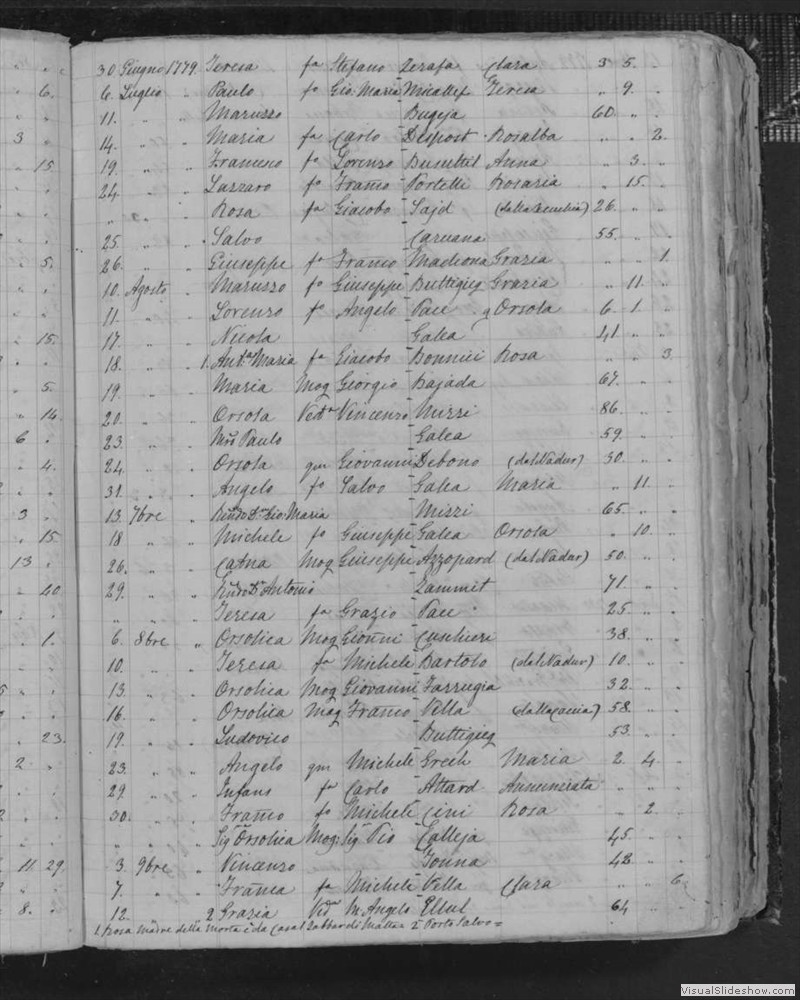 30 Giugno 1779. Teresa fa Stefano Zerafa Clara 3 5.
6. Luglio " Paulo fo Gio: Maria Micallef Teresa " 9. "
11. " " Maruzzo Bugeja 60. " "
14. " " Maria fa Carlo Despost Rosalba " " 2.
19. " " Francesco fo Lorenzo Busuttil Anna " 3. "
24. " " Lazzaro fo Franco Portelli Rosaria " 15. "
" " " Rosa fa Giacobo Sajd 26. " "
25. " " Salvo Caruana 55. " "
26. " " Giuseppe fo Franco Madiona Grazia " " 1.
10. Agosto " Maruzzo fo Giuseppe Buttigieg Grazia " 11. "
11. " " Lorenzo fo Angelo Pace q Orsola 6. 1. "
17. " " Nicola Galea 41. " "
18. " " 1. Anta Maria fa Giacobo Bonnici Rosa " " 3.
19. " " Maria Mog Giorgio Bajada 67. " "
20. " " Orsola Veda Vincenzo Mizzi 86. " "
23. " " Mro Paulo Galea 59. " "
24. " " Orsola qm Giovanni Debono (dal Nadur) 30. " "
31. " " Angelo fo Salvo Galea Maria " 11. "
13. 7bre " Revdo Dn Gio: Maria Mizzi 65. " "
18 " " Michele fo Giuseppe Galea Orsola " 10. "
26. " " Catna Mog Giuseppe Azzopard (dal Nadur) 50. " "
29. " " Revdo Dn Antonio Zammit 71. " "
" " " Teresa fa Grazio Pace 25 " "
6. 8bre " Orsolica Mog Gionni Cuschieri 38. " "
10. " " Teresa fa Michele Bartolo (dal Nadur) 10. " "
13 " " Orsolica Mog Giovanni Farrugia 32. " "
16. " " Orsolica Mog Franco Vella (dalla Caccia) 58. " "
19. " " Ludovico Buttigieg 53. " "
23. " " Angelo qm Michele Grech Maria 2. 4. "
29. " " Infans fa Carlo Attard Annunciata " " "
30. " " Franco fo Michele Cini Rosa " 2. "
" " " Siga Orsolica Mog: Sig Pio Calleja 45. " "
3. 9bre " Vincenzo Jonna 48. " "
7. " " Franca fa Michele Vella Clara " " 6.
12. " 2 Grazia Veda M. Angelo Ellul 64. " "
1. Rosa madre della morta è da Casal Zabbar di Malta = 2 Porto Salvo =
6.
3
15
5.
15.
5.
16.
6
4.
3
15
13
40
1.
23.
2
11 29.
8.
VisualSlideshow.com